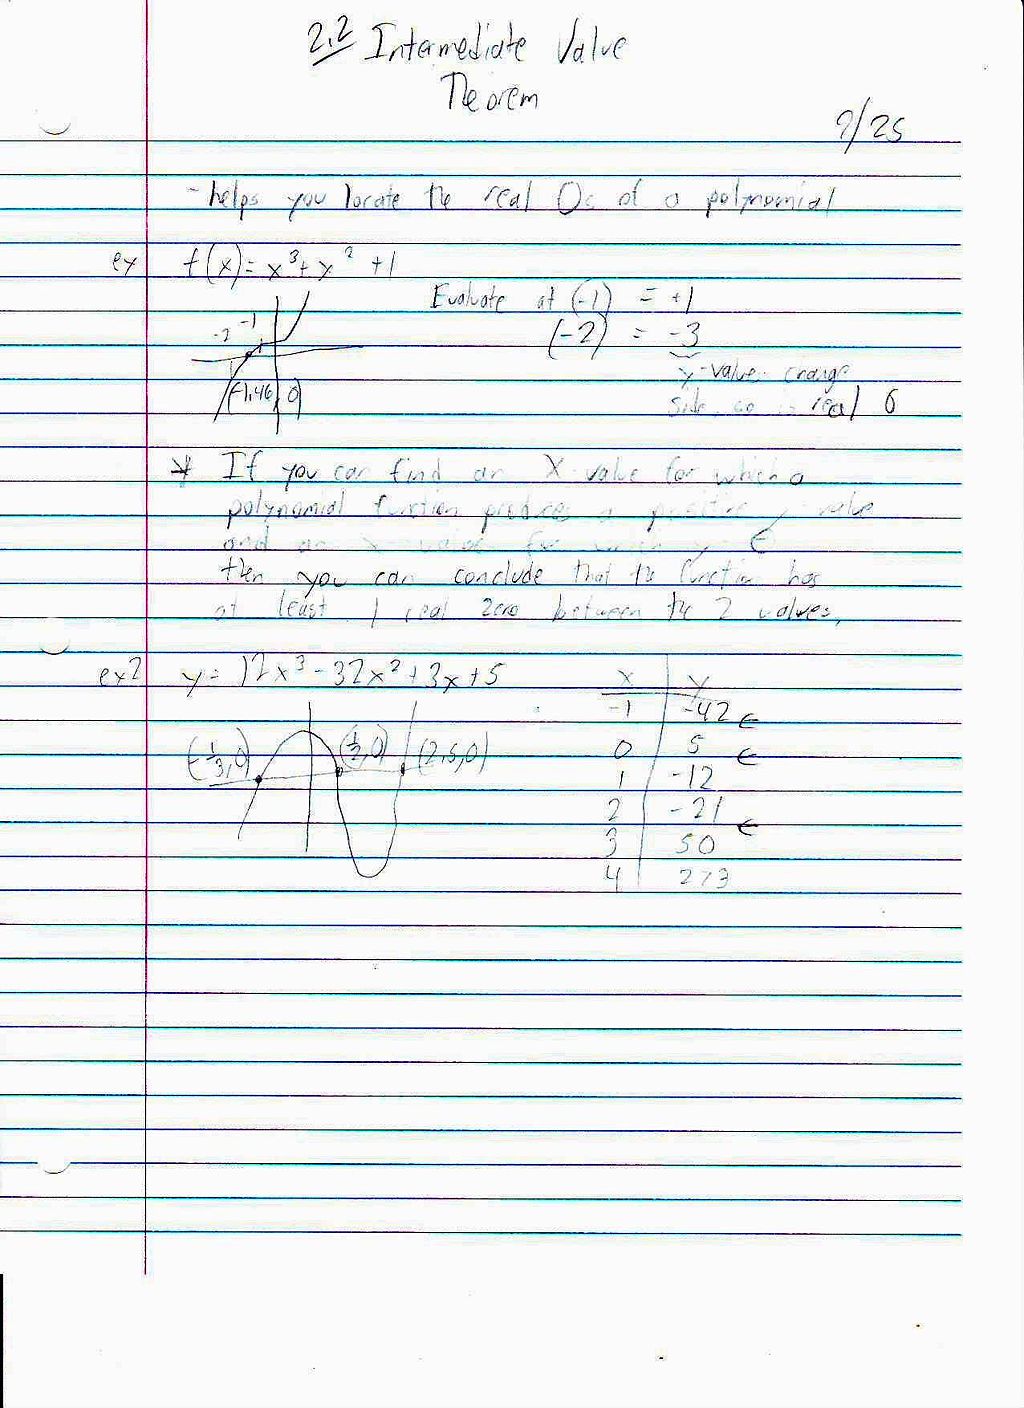 2.2 Intermediate Value
Theorem
9/25
- helps you locate the real 0s of a polynomial
ex f(x)= x³+x² +1
Evaluate at (-1) = +1
(-2) = -3
-2 -1
(-1.46, 0)
y-value change
so real 0
* If you can find an X value for which a
polynomial function produces a positive y value
and an x value for which y
then you can conclude that the function has
at least 1 real zero between the 2 values.
ex2 y= 12x³-32x²+3x+5
x y
-1 -42 ←
0 5 ←
1 -12
2 -21 ←
3 50
4 273
(-1/3,0) (1/2,0) (2.5,0)